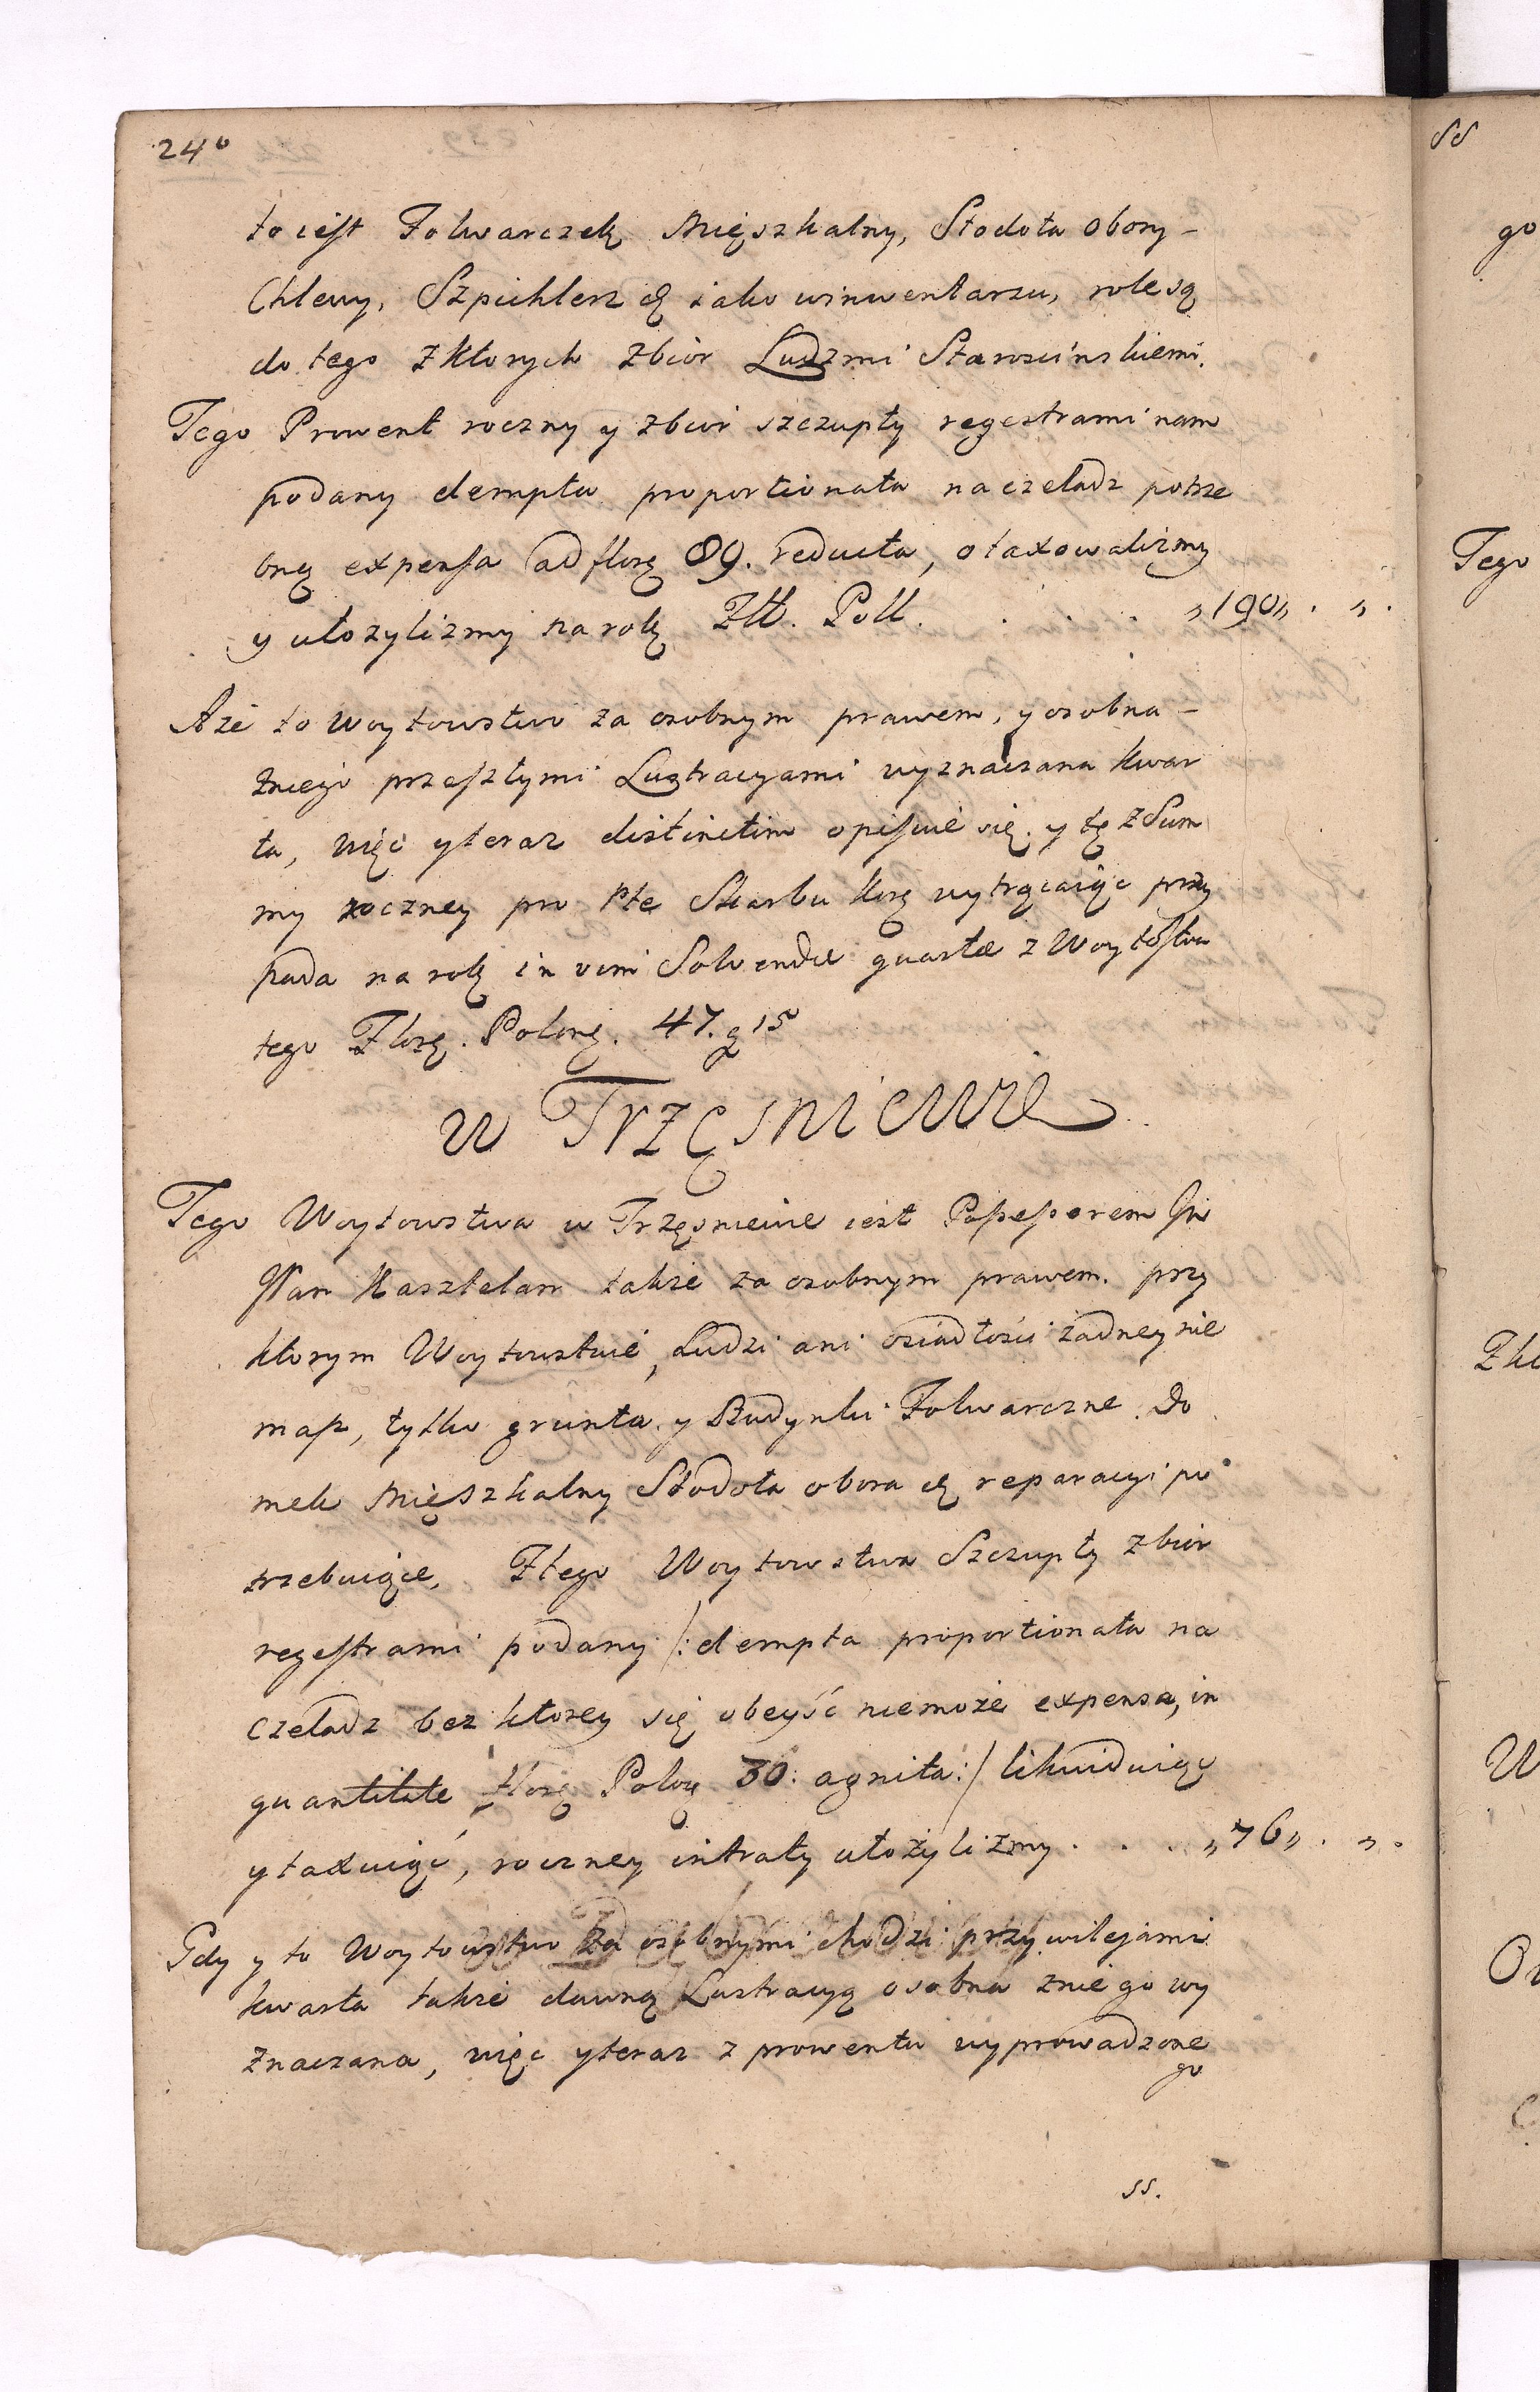 240
to iest Folwarczek Mięszkalny, Stodoła obory –
Chlewy, Szpichlerz iako winwentarzu, role są
do tego z ktorych zbior Ludzmi Staroscinskiemi.
Tego Prowent roczny y zbior szczupły regestrami nam
podany dempta proportionata na czeladz potrze
bną expensa ad flors 89. reducta, otaxowalizmy
y ułozylizmy na rok Złł. Poll. . . . . „190„ . „ .
Aże to Woytowstwo za osobnym prawem, y osobna –
zniego przeszłymi Lustracyami wyznaczana kwar
ta, więc y teraz distinctim opisuie się. y tę z Sum
my roczney pro Pte Skarbu Kor. wytrącaiąc przy
pada na rok in vim Solvendæ quartæ z Woytostwa
tego Flor. Polon. 47. g 15
w Trzęsniewie
Tego Woytowstwa w Trzęsniewie iest Possessorem Jw
Pan Kasztelan takze za osobnym prawem. przy
ktorym Woytowstwie, Ludzi ani osiadłosci zadney nie
masz, tylko grunta y Budynki Folwarczne. Do
mek Mięszkalny Stodoła obora reparacyi po
trzebuiące. Ztego Woytowstwa Szczupły zbior
regestrami podany /: dempta proportionata na
czeladz bez ktorey się obeyść niemoże expensa, in
quantitate flor. Polon. 30. agnita :/ likwiduiąc
y taxuiąc, roczney intraty ułożylizmy . . . „76„ . „ .
Gdy y to Woytowstwo za osobnymi chodzi przywilejami
kwarta takze dawną Lustracyą osobna zniego wy
znaczana, więc y teraz z prowentu wyprowadzone
go
ss.
ss
go
Tego
W